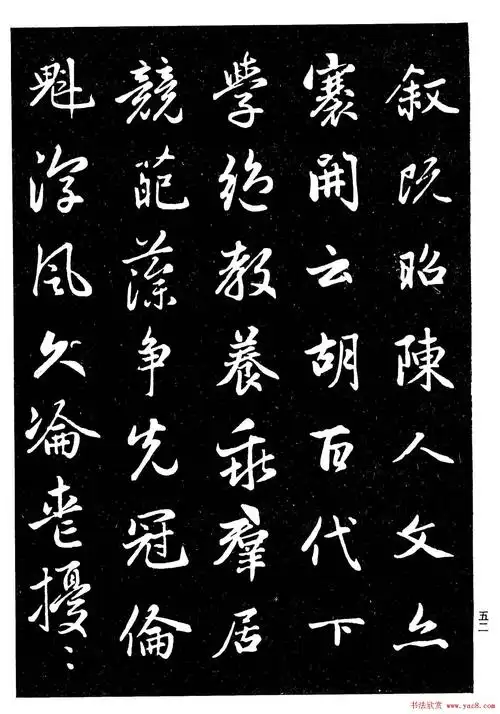 叙既昭陳人文亦
褰開云胡百代下
學絶教養乖羣居
競葩藻争先冠倫
魁淳風久淪喪擾〻
五二
书法欣赏 www.yac8.com